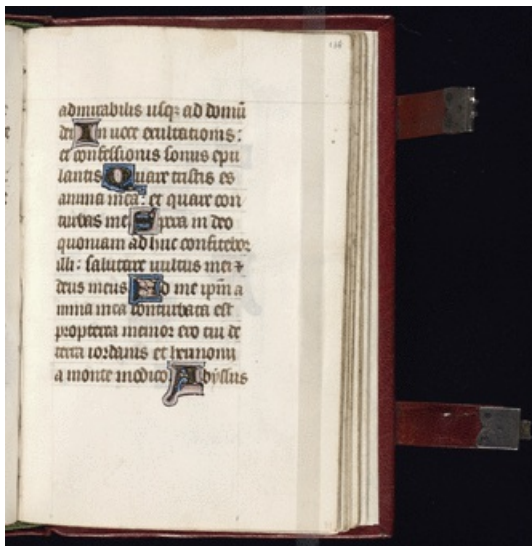 admirabilis usq; ad domū
dei In uoce exultationis :
et confessionis sonus epu
lantis Quare tristis es
anima mea : et quare con
turbas me Spera in deo
quoniam ad huc confitebor
illi : salutare uultus mei ⁊
deus meus Ad me ipm̄ a
nima mea conturbata est
propterea memor ero tui de
terra iordanis et hermonii
a monte modico Abyssus